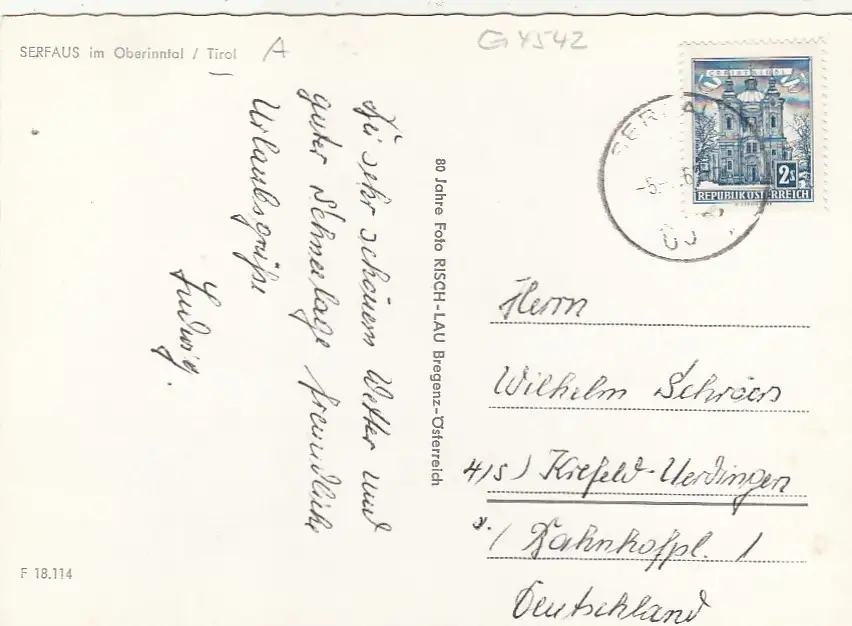 SERFAUS im Oberinntal / Tirol
A
G 4542
CHRISTKINDL
2s
REPUBLIK ÖSTERREICH
SERFAUS
Bei sehr schönem Wetter und
guter Schneelage freundliche
Urlaubsgrüße
Ludwig.
80 Jahre Foto RISCH-LAU Bregenz-Österreich
Herrn
Wilhelm Schröers
415) Krefeld-Uerdingen
Bahnhofpl. 1
Deutschland
F 18.114